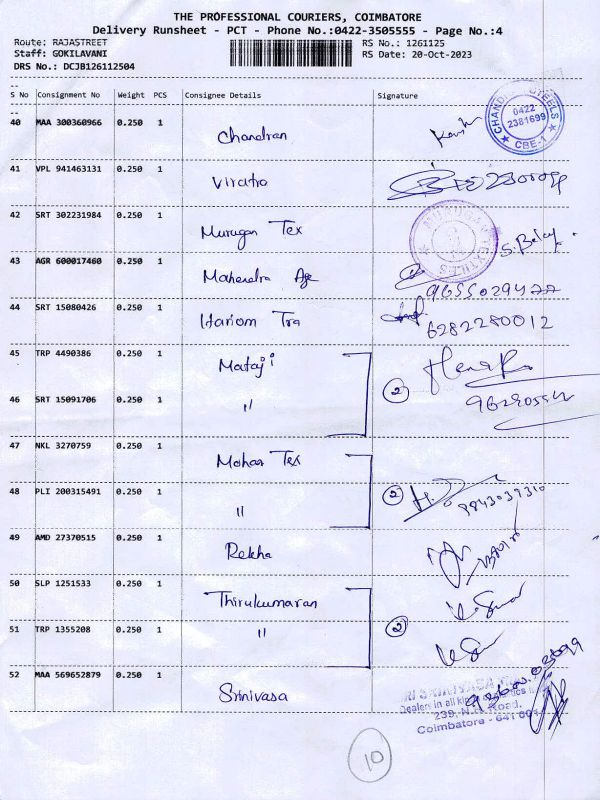 THE PROFESSIONAL COURIERS, COIMBATORE
Delivery Runsheet - PCT - Phone No.:0422-3505555 - Page No.:4
Route: RAJASTREET RS No.: 1261125
Staff: GOKILAVANI RS Date: 20-Oct-2023
DRS No.: DCJB126112504
--
S No Consignment No Weight PCS Consignee Details Signature
--
40 MAA 300360966 0.250 1 Chandran
CHANDRA STEELS 0422 2381699 CBE-1
41 VPL 941463131 0.250 1
42 SRT 302231984 0.250 1 Murugan Tex S. Balaji
MURUGAN TEXTILES
43 AGR 600017460 0.250 1 Mahendra Age
9655029477
44 SRT 15080426 0.250 1 Hariom Tra 6282280012
45 TRP 4490386 0.250 1 Mataji
2
46 SRT 15091706 0.250 1 "
47 NKL 3270759 0.250 1 Mohan Tex
48 PLI 200315491 0.250 1 " 2 9843037310
49 AMD 27370515 0.250 1 Rekha
50 SLP 1251533 0.250 1 Thirukumaran
2
51 TRP 1355208 0.250 1 "
52 MAA 569652879 0.250 1 Srinivasa
Dealers in all
239, N.H. Road,
Coimbatore - 641 001
10